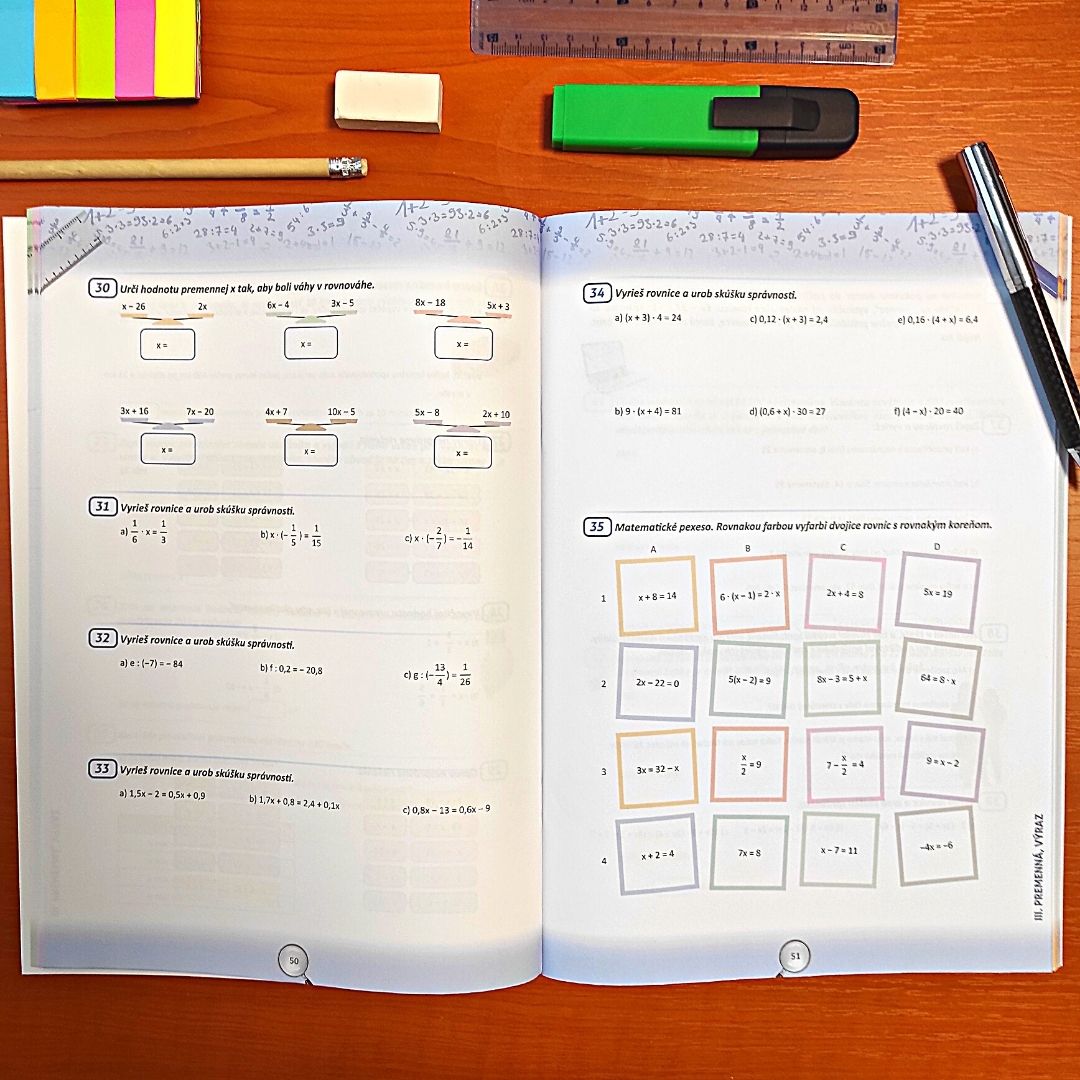 30 Urči hodnotu premennej x tak, aby boli váhy v rovnováhe.
x – 26 2x 6x – 4 3x – 5 8x – 18 5x + 3
x = x = x =
3x + 16 7x – 20 4x + 7 10x – 5 5x – 8 2x + 10
x = x = x =
31 Vyrieš rovnice a urob skúšku správnosti.
a) 1/6 · x = 1/3 b) x · (– 1/5) = 1/15 c) x · (– 2/7) = – 1/14
32 Vyrieš rovnice a urob skúšku správnosti.
a) e : (–7) = – 84 b) f : 0,2 = – 20,8 c) g : (– 13/4) = 1/26
33 Vyrieš rovnice a urob skúšku správnosti.
a) 1,5x – 2 = 0,5x + 0,9 b) 1,7x + 0,8 = 2,4 + 0,1x c) 0,8x – 13 = 0,6x – 9
50
34 Vyrieš rovnice a urob skúšku správnosti.
a) (x + 3) · 4 = 24 c) 0,12 · (x + 3) = 2,4 e) 0,16 · (4 + x) = 6,4
b) 9 · (x + 4) = 81 d) (0,6 + x) · 30 = 27 f) (4 – x) · 20 = 40
35 Matematické pexeso. Rovnakou farbou vyfarbi dvojice rovníc s rovnakým koreňom.
A B C D
1 x + 8 = 14 6 · (x – 1) = 2 · x 2x + 4 = 8 5x = 19
2 2x – 22 = 0 5(x – 2) = 9 8x – 3 = 5 + x 64 = 8 · x
3 3x = 32 – x x/2 = 9 7 – x/2 = 4 9 = x – 2
4 x + 2 = 4 7x = 8 x – 7 = 11 –4x = –6
51
III. PREMENNÁ, VÝRAZ